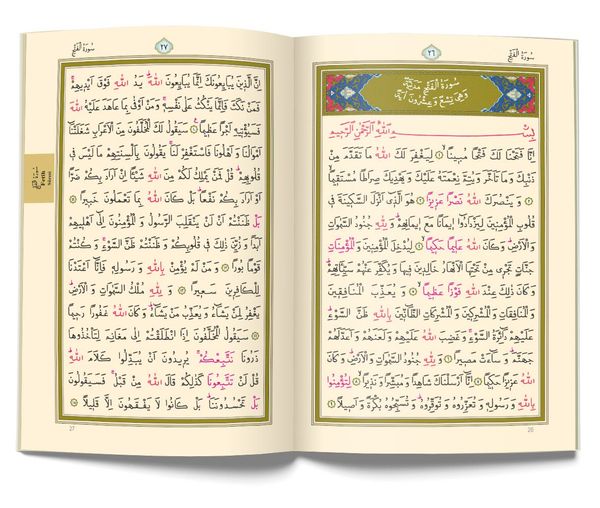 سُورَةُ الْفَتْحِ
٢٦
سُورَةُ الْفَتْحِ مَدَنِيَّةٌ
وَهِيَ تِسْعٌ وَعِشْرُونَ آيَةً
بِسْمِ اللّٰهِ الرَّحْمٰنِ الرَّحِيمِ
اِنَّا فَتَحْنَا لَكَ فَتْحًا مُبِينًا ﴿١﴾ لِيَغْفِرَ لَكَ اللّٰهُ مَا تَقَدَّمَ مِنْ
ذَنْبِكَ وَمَا تَاَخَّرَ وَيُتِمَّ نِعْمَتَهُ عَلَيْكَ وَيَهْدِيَكَ صِرَاطًا مُسْتَقِيمًا
﴿٢﴾ وَيَنْصُرَكَ اللّٰهُ نَصْرًا عَزِيزًا ﴿٣﴾ هُوَ الَّذِي اَنْزَلَ السَّكِينَةَ فِي
قُلُوبِ الْمُؤْمِنِينَ لِيَزْدَادُوا اِيمَانًا مَعَ اِيمَانِهِمْ وَلِلّٰهِ جُنُودُ السَّمٰوَاتِ
وَالْاَرْضِ وَكَانَ اللّٰهُ عَلِيمًا حَكِيمًا ﴿٤﴾ لِيُدْخِلَ الْمُؤْمِنِينَ وَالْمُؤْمِنَاتِ
جَنَّاتٍ تَجْرِي مِنْ تَحْتِهَا الْاَنْهَارُ خَالِدِينَ فِيهَا وَيُكَفِّرَ عَنْهُمْ سَيِّـَٔاتِهِمْ
وَكَانَ ذٰلِكَ عِنْدَ اللّٰهِ فَوْزًا عَظِيمًا ﴿٥﴾ وَيُعَذِّبَ الْمُنَافِقِينَ
وَالْمُنَافِقَاتِ وَالْمُشْرِكِينَ وَالْمُشْرِكَاتِ الظَّانِّينَ بِاللّٰهِ ظَنَّ السَّوْءِ
عَلَيْهِمْ دَائِرَةُ السَّوْءِ وَغَضِبَ اللّٰهُ عَلَيْهِمْ وَلَعَنَهُمْ وَاَعَدَّ لَهُمْ
جَهَنَّمَ وَسَاءَتْ مَصِيرًا ﴿٦﴾ وَلِلّٰهِ جُنُودُ السَّمٰوَاتِ وَالْاَرْضِ وَكَانَ
اللّٰهُ عَزِيزًا حَكِيمًا ﴿٧﴾ اِنَّا اَرْسَلْنَاكَ شَاهِدًا وَمُبَشِّرًا وَنَذِيرًا ﴿٨﴾ لِتُؤْمِنُوا
بِاللّٰهِ وَرَسُولِهِ وَتُعَزِّرُوهُ وَتُوَقِّرُوهُ وَتُسَبِّحُوهُ بُكْرَةً وَاَصِيلًا ﴿٩﴾
26
٢٧
سُورَةُ الْفَتْحِ
اِنَّ الَّذِينَ يُبَايِعُونَكَ اِنَّمَا يُبَايِعُونَ اللّٰهَ يَدُ اللّٰهِ فَوْقَ اَيْدِيهِمْ
فَمَنْ نَكَثَ فَاِنَّمَا يَنْكُثُ عَلٰى نَفْسِهِ وَمَنْ اَوْفٰى بِمَا عَاهَدَ عَلَيْهُ اللّٰهَ
فَسَيُؤْتِيهِ اَجْرًا عَظِيمًا ﴿١٠﴾ سَيَقُولُ لَكَ الْمُخَلَّفُونَ مِنَ الْاَعْرَابِ شَغَلَتْنَا
اَمْوَالُنَا وَاَهْلُونَا فَاسْتَغْفِرْ لَنَا يَقُولُونَ بِاَلْسِنَتِهِمْ مَا لَيْسَ فِي
قُلُوبِهِمْ قُلْ فَمَنْ يَمْلِكُ لَكُمْ مِنَ اللّٰهِ شَيْـًٔا اِنْ اَرَادَ بِكُمْ ضَرًّا
اَوْ اَرَادَ بِكُمْ نَفْعًا بَلْ كَانَ اللّٰهُ بِمَا تَعْمَلُونَ خَبِيرًا ﴿١١﴾
بَلْ ظَنَنْتُمْ اَنْ لَنْ يَنْقَلِبَ الرَّسُولُ وَالْمُؤْمِنُونَ اِلٰى اَهْلِيهِمْ
اَبَدًا وَزُيِّنَ ذٰلِكَ فِي قُلُوبِكُمْ وَظَنَنْتُمْ ظَنَّ السَّوْءِ وَكُنْتُمْ
قَوْمًا بُورًا ﴿١٢﴾ وَمَنْ لَمْ يُؤْمِنْ بِاللّٰهِ وَرَسُولِهِ فَاِنَّا اَعْتَدْنَا
لِلْكَافِرِينَ سَعِيرًا ﴿١٣﴾ وَلِلّٰهِ مُلْكُ السَّمٰوَاتِ وَالْاَرْضِ
يَغْفِرُ لِمَنْ يَشَاءُ وَيُعَذِّبُ مَنْ يَشَاءُ وَكَانَ اللّٰهُ غَفُورًا رَحِيمًا
﴿١٤﴾ سَيَقُولُ الْمُخَلَّفُونَ اِذَا انْطَلَقْتُمْ اِلٰى مَغَانِمَ لِتَأْخُذُوهَا
ذَرُونَا نَتَّبِعْكُمْ يُرِيدُونَ اَنْ يُبَدِّلُوا كَلَامَ اللّٰهِ
قُلْ لَنْ تَتَّبِعُونَا كَذٰلِكُمْ قَالَ اللّٰهُ مِنْ قَبْلُ فَسَيَقُولُونَ
بَلْ تَحْسُدُونَنَا بَلْ كَانُوا لَا يَفْقَهُونَ اِلَّا قَلِيلًا ﴿١٥﴾
27
سُورَةُ الْفَتْحِ
Fetih
Sûresi